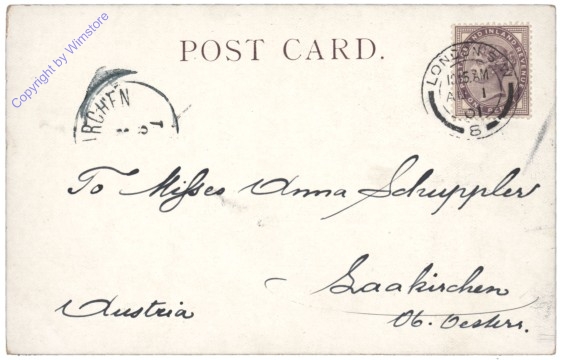 POST CARD.
LONDON S.W
10.15 AM
AU 1
01
8
IRCHEN
To Misses Anna Schuppler
Laakirchen
Austria
Ob. Oesterr.
Copyright by Wimstore